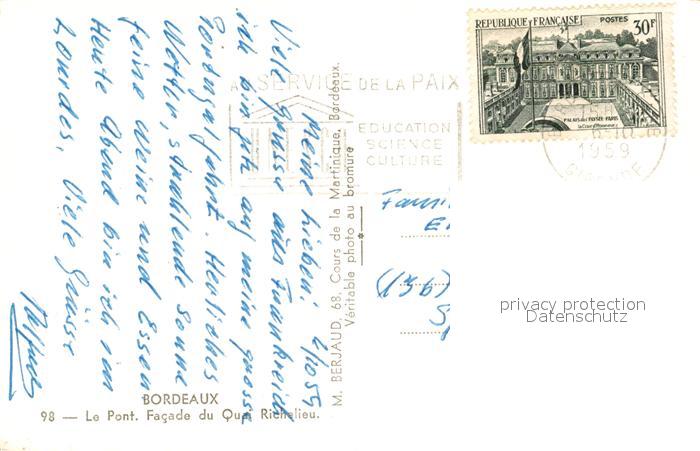 Meine Lieben! 2/10 59
Viele Grüsse aus Frankreich
ich bin jetzt auf meine grosse
Portugalfahrt. Herliches
Wetter, strahlende Sonne
feine Weine und Essen
Heute Abend bin ich in
Lourdes. Viele Grüsse
BORDEAUX
98 — Le Pont. Façade du Quai Richelieu.
M. BERJAUD, 68, Cours de la Martinique, Bordeaux.
Véritable photo au bromure
AU SERVICE DE LA PAIX
EDUCATION
SCIENCE
CULTURE
REPUBLIQUE FRANÇAISE
POSTES
30F
PALAIS DE L'ELYSEE-PARIS
(la Cour d'Honneur)
1959
GIRONDE
(13b)
privacy protection
Datenschutz